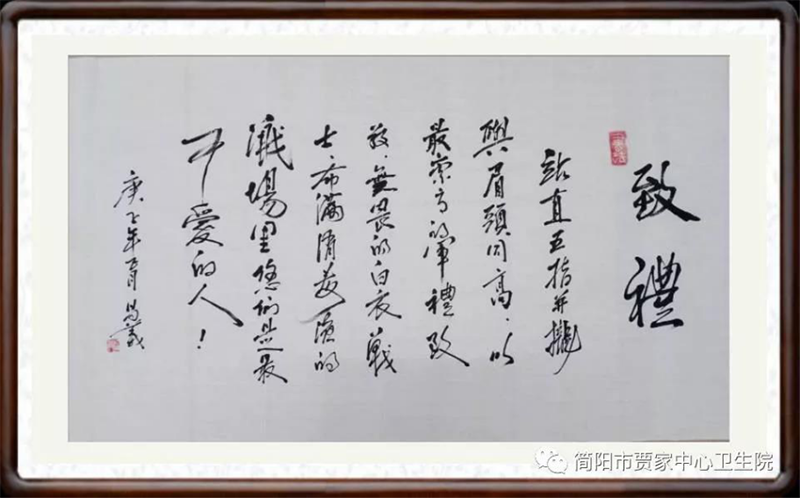 致禮
站直五指并攏
與眉頭同高，以
最崇高的軍禮致
敬，無畏的白衣戰
士，布滿消毒液的
戰場里您们是最
可愛的人！
庚子年
简阳市贾家中心卫生院